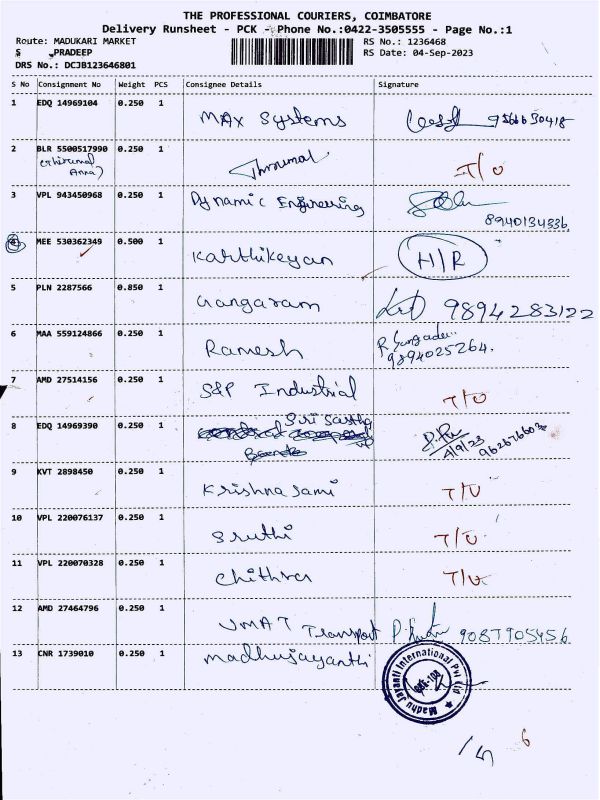 THE PROFESSIONAL COURIERS, COIMBATORE
Delivery Runsheet - PCK - Phone No.:0422-3505555 - Page No.:1
Route: MADUKARI MARKET RS No.: 1236468
S PRADEEP RS Date: 04-Sep-2023
DRS No.: DCJB123646801
S No Consignment No Weight PCS Consignee Details Signature
1 EDQ 14969104 0.250 1 MAX Systems
2 BLR 5500517990 0.250 1 Thirumal T/O
(Thirumal Anna)
3 VPL 943450968 0.250 1 Dynamic Engineering
8940134336
4 MEE 530362349 0.500 1 Karthikeyan H/R
5 PLN 2287566 0.850 1 Gangaram 9894283122
6 MAA 559124866 0.250 1 Ramesh
9894025264.
7 AMD 27514156 0.250 1 S&P Industrial T/O
8 EDQ 14969390 0.250 1 Sri Sastha
4/9/23
9 KVT 2898450 0.250 1 Krishna sami T/O
10 VPL 220076137 0.250 1 Sruthi T/O
11 VPL 220070328 0.250 1 Chithra T/O
12 AMD 27464796 0.250 1 UMAT Transport 9087705456
13 CNR 1739010 0.250 1 Madhujayanthi
Madhu Jayanti International Pvt Ltd
6